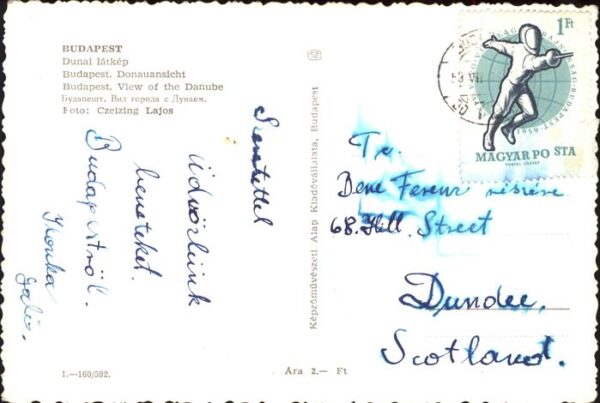 BUDAPEST
Dunai látkép
Budapest. Donauansicht
Budapest. View of the Danube
Будапешт. Вид города с Дунаем.
Foto: Czeizing Lajos
Szeretettel
üdvözlünk
benneteket.
Budapestről.
Ilonka
I.—160/592.
Ára 2.— Ft
Képzőművészeti Alap Kiadóvállalata, Budapest
1 Ft
MAGYAR POSTA
Bene Ferenc részére
68. Hill. Street
Dundee.
Scotland.